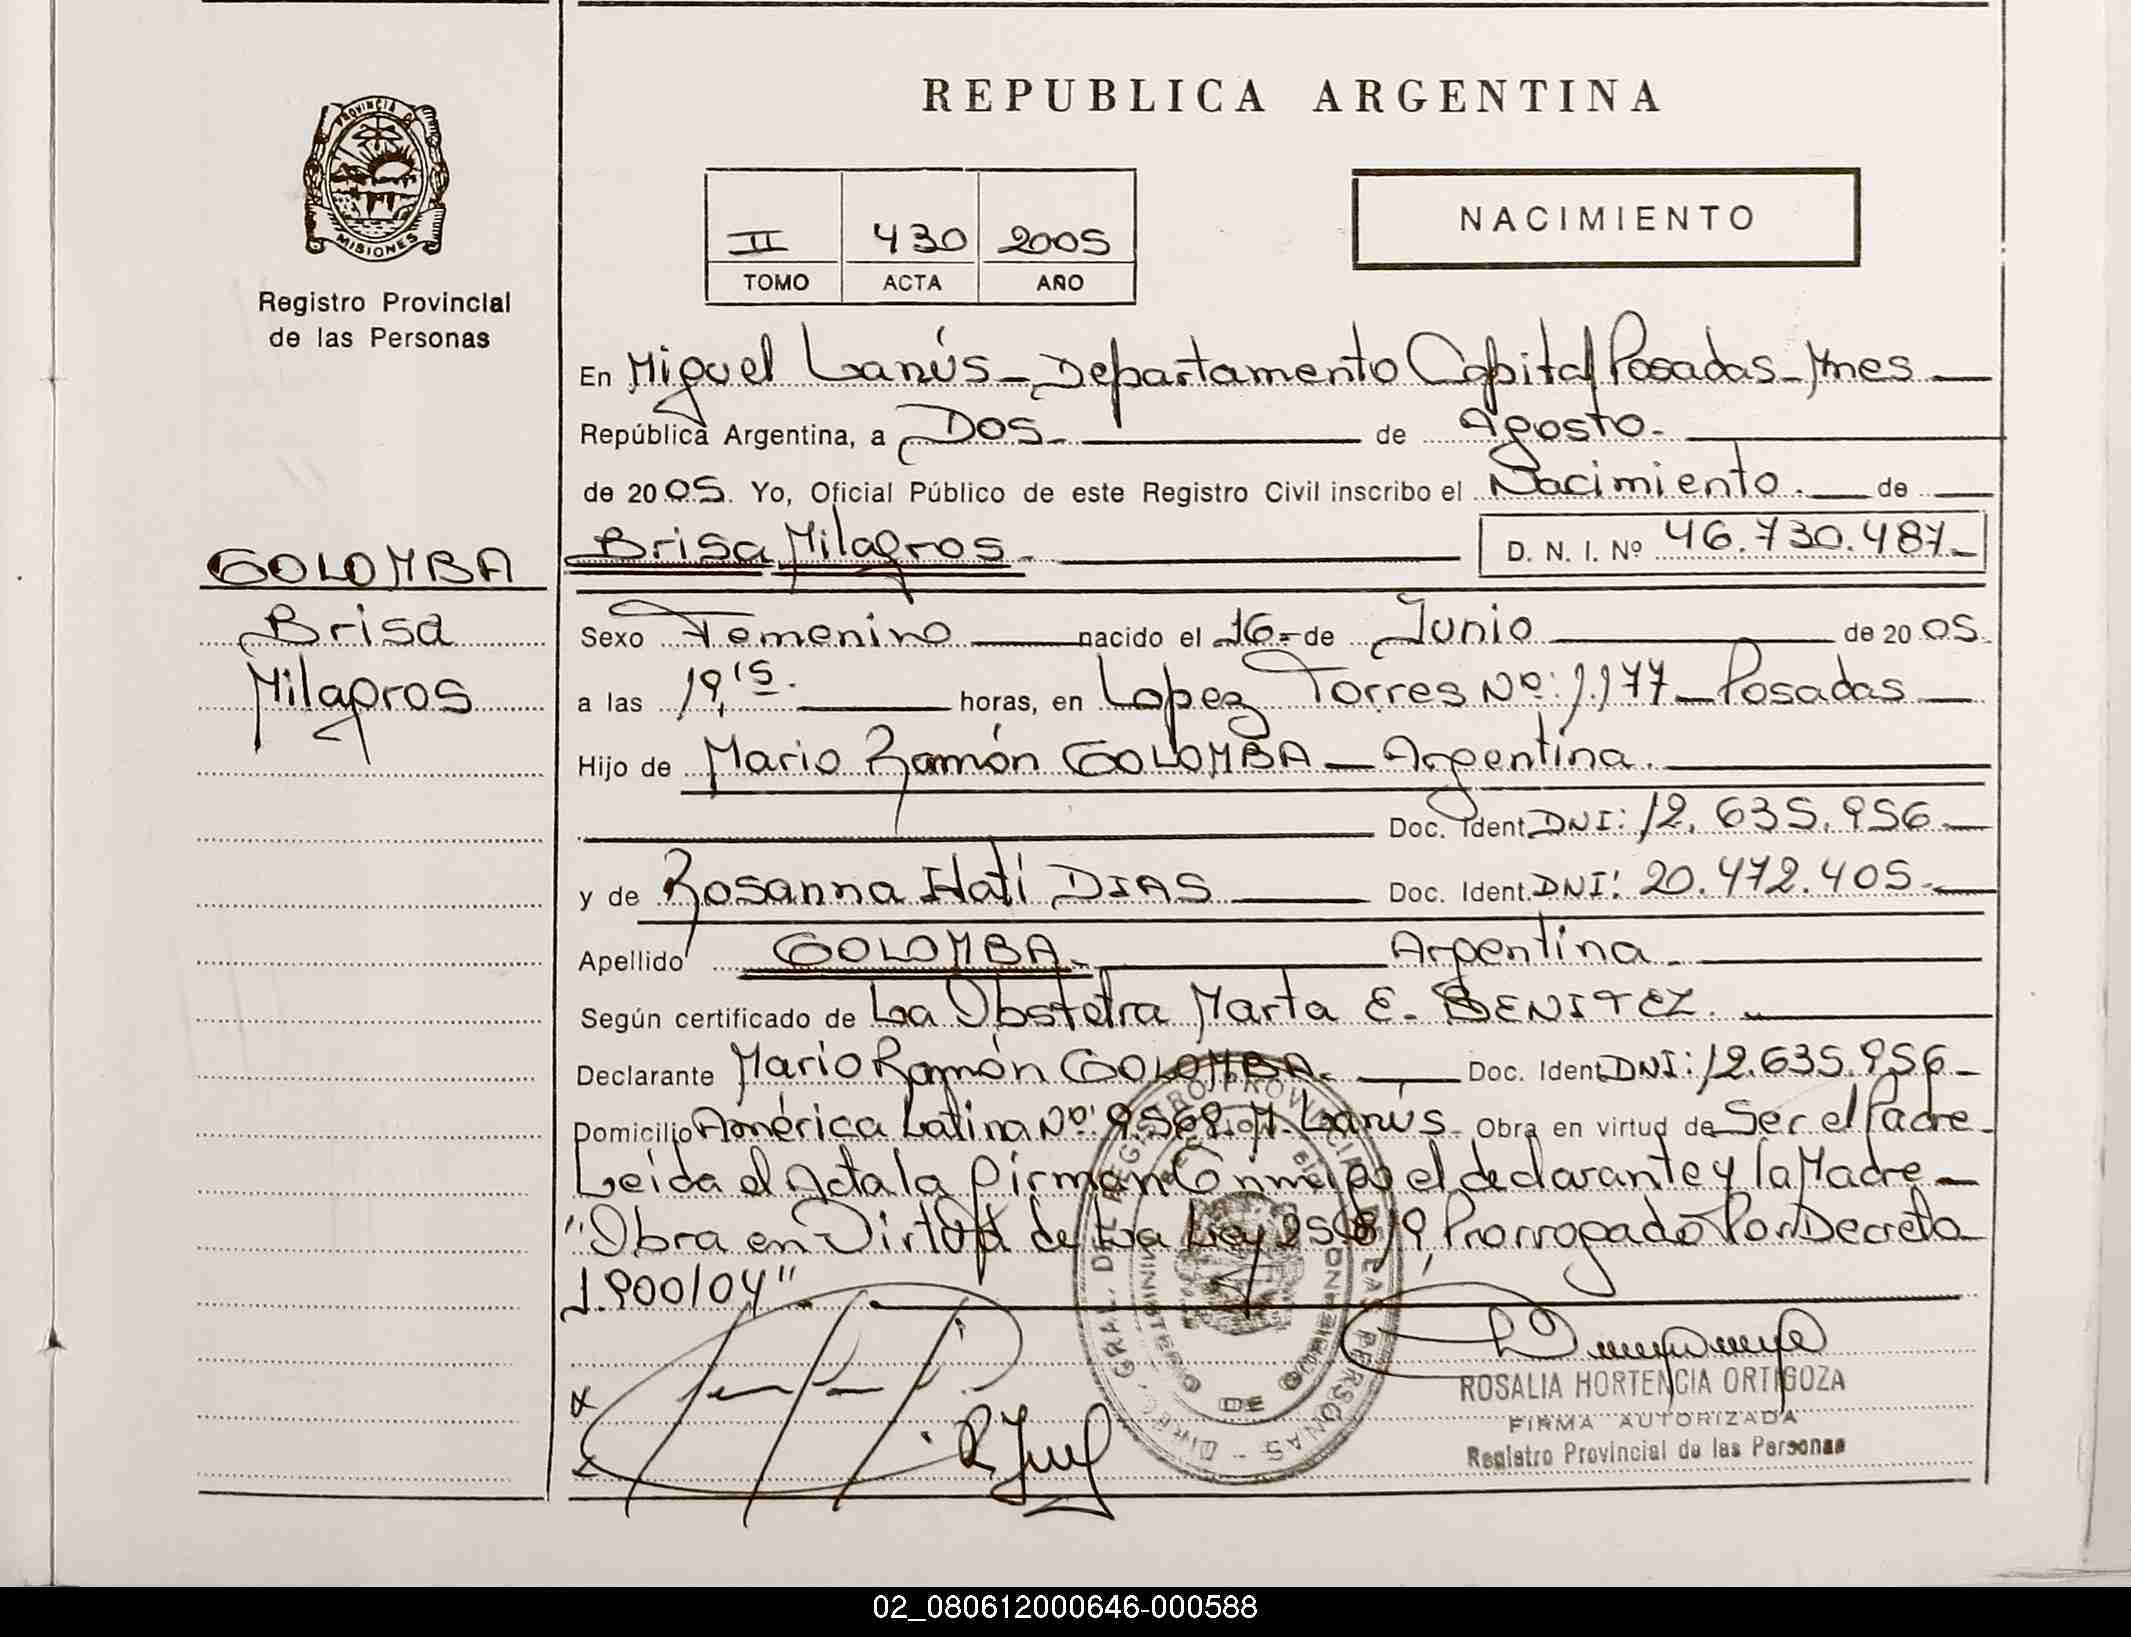 REPUBLICA ARGENTINA
PROVINCIA DE
MISIONES
Registro Provincial
de las Personas
II 430 2005
TOMO ACTA AÑO
NACIMIENTO
En Miguel Lanús - Departamento Capital Posadas - Mnes
República Argentina, a Dos de Agosto.
de 2005. Yo, Oficial Público de este Registro Civil inscribo el Nacimiento. de
GOLOMBA
Brisa
Milagros
Brisa Milagros. D. N. I. Nº 46.730.487.
Sexo Femenino nacido el 16 de Junio de 2005.
a las 19,15. horas, en Lopez Torres Nº: 1.177 - Posadas
Hijo de Mario Ramón GOLOMBA - Argentina.
Doc. Ident. DNI: 12.635.956
y de Rosanna Itatí DIAS Doc. Ident. DNI: 20.472.405.
Apellido GOLOMBA. Argentina.
Según certificado de La Obstetra Marta E. BENITEZ.
Declarante Mario Ramón GOLOMBA. Doc. Ident. DNI: 12.635.956
Domicilio América Latina Nº: 9.562. M. Lanús. Obra en virtud de Ser el Padre
Leída el Acta la firman Conmigo el declarante y la Madre
"Obra en Virtud de La Ley 25.819, Prorrogado Por Decreto
1.900/04".
ROSALIA HORTENCIA ORTIGOZA
FIRMA AUTORIZADA
Registro Provincial de las Personas
02_080612000646-000588